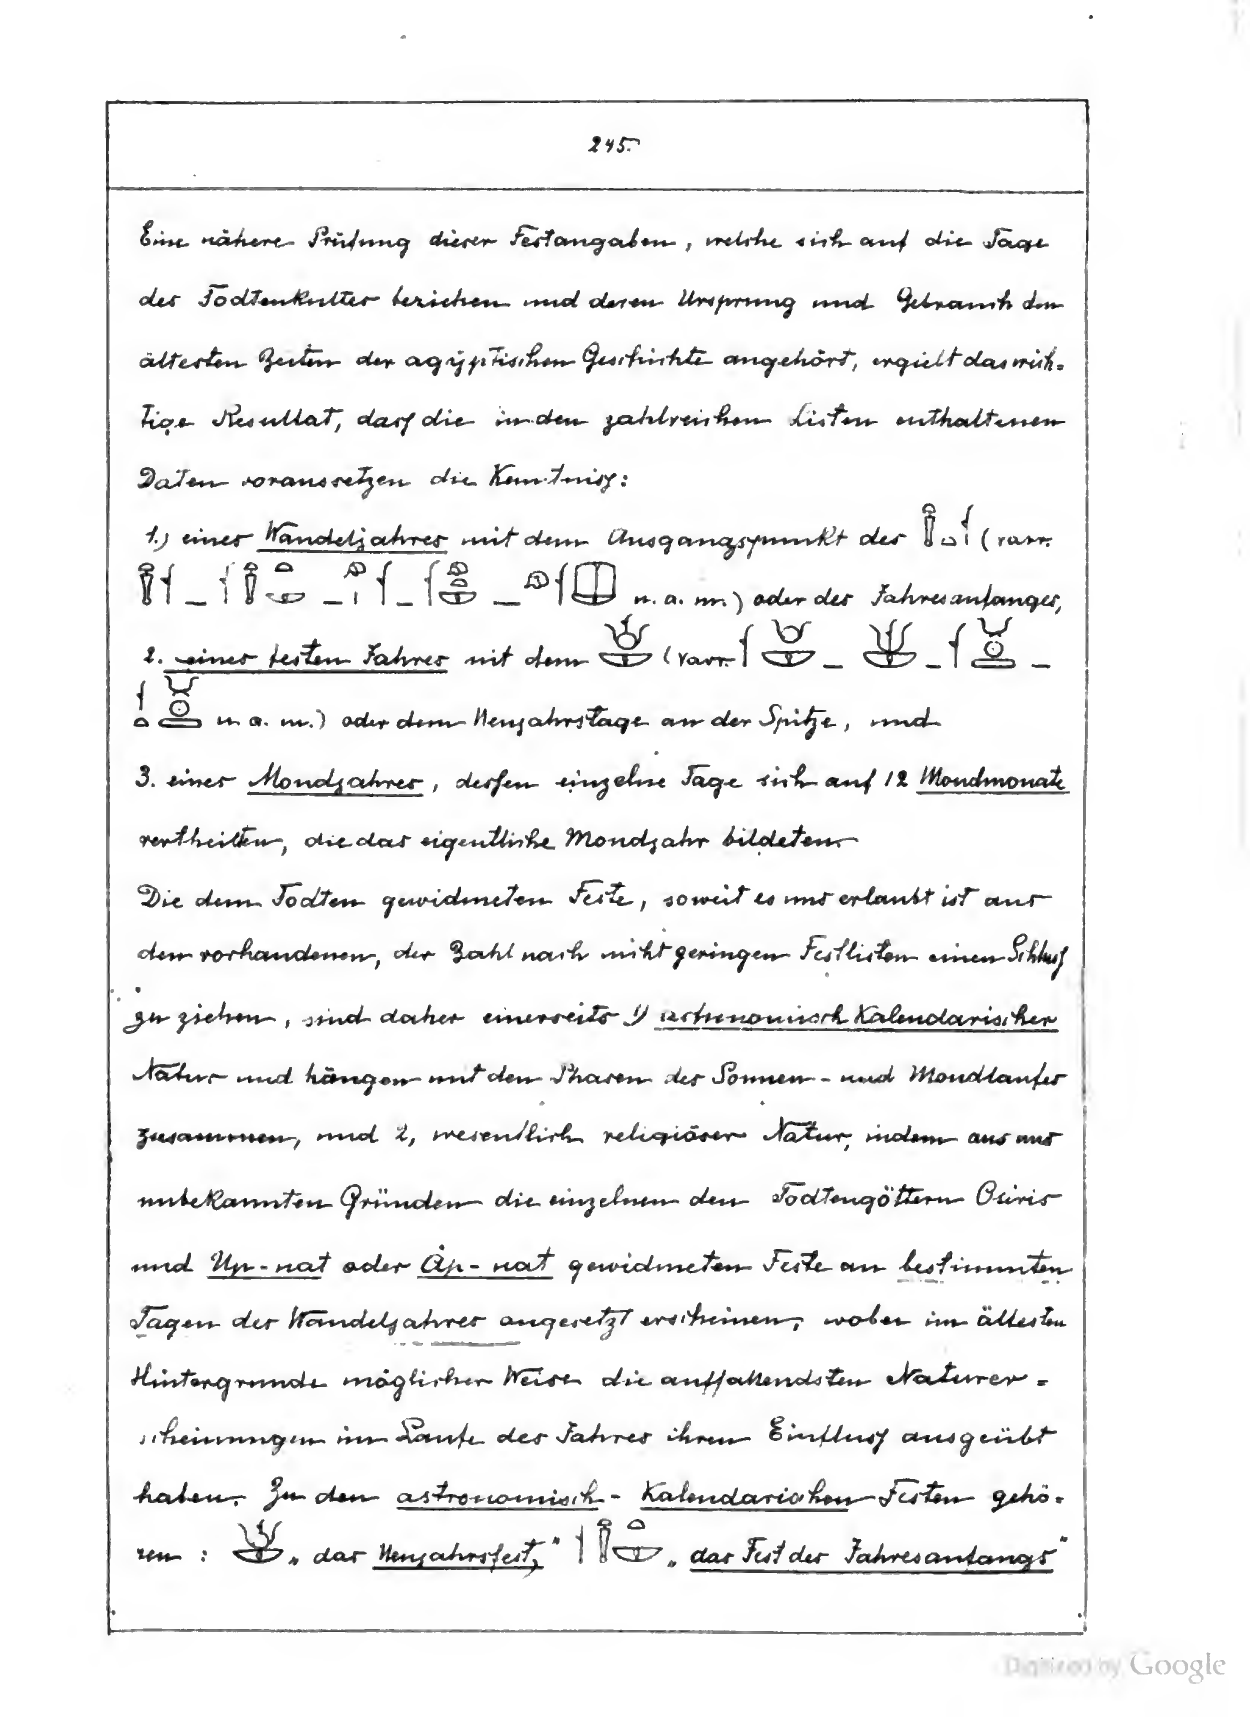 245.
Eine nähere Prüfung dieser Festangaben, welche sich auf die Tage
des Todtenkultes beziehen und deren Ursprung und Gebrauch den
ältesten Zeiten der ägyptischen Geschichte angehört, ergiebt das wich-
tige Resultat, dass die in den zahlreichen Listen enthaltenen
Daten voraussetzen die Kenntniss:
1.) eines Wandeljahres mit dem Ausgangspunkt des (varr.
u. a. m.) oder des Jahresanfanges,
2. eines festen Jahres mit dem (varr.
u. a. m.) oder dem Neujahrstage an der Spitze, und
3. eines Mondjahres, dessen einzelne Tage sich auf 12 Mondmonate
vertheilten, die das eigentliche Mondjahr bildeten.
Die dem Todten gewidmeten Feste, soweit es uns erlaubt ist aus
den vorhandenen, der Zahl nach nicht geringen Festlisten einen Schluss
zu ziehen, sind daher einerseits 1) astronomisch kalendarischer
Natur und hängen mit den Phasen des Sonnen- und Mondlaufes
zusammen, und 2, wesentlich religiöser Natur, indem aus uns
unbekannten Gründen die einzelnen den Todtengöttern Osiris
und Up-nat oder Áp-nat gewidmeten Feste an bestimmten
Tagen des Wandeljahres angesetzt erscheinen, wobei im ältesten
Hintergrunde möglicher Weise die auffallendsten Naturer-
scheinungen im Laufe des Jahres ihren Einfluss ausgeübt
haben. Zu den astronomisch-kalendarischen Festen gehö-
ren: „das Neujahrsfest," „das Fest des Jahresanfangs"
Digitized by Google